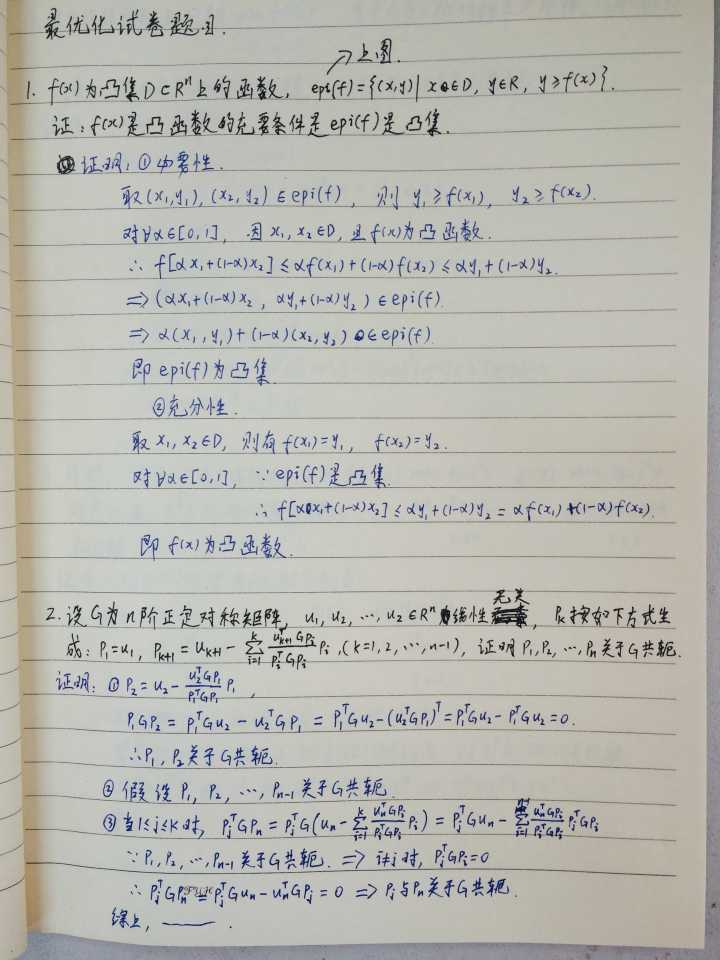 最优化试卷题目.
→上图.
1. f(x)为凸集D⊂Rⁿ上的函数, epi(f)={(x,y)| x∈D, y∈R, y≥f(x)}.
证:f(x)是凸函数的充要条件是epi(f)是凸集.
证明:①必要性.
取(x₁,y₁),(x₂,y₂)∈epi(f), 则 y₁≥f(x₁), y₂≥f(x₂).
对∀α∈[0,1], 因x₁,x₂∈D,且f(x)为凸函数.
∴ f[αx₁+(1-α)x₂]≤αf(x₁)+(1-α)f(x₂)≤αy₁+(1-α)y₂.
⇒(αx₁+(1-α)x₂, αy₁+(1-α)y₂)∈epi(f).
⇒ α(x₁,y₁)+(1-α)(x₂,y₂)∈epi(f).
即epi(f)为凸集.
②充分性.
取x₁,x₂∈D, 则有f(x₁)=y₁, f(x₂)=y₂.
对∀α∈[0,1], ∵epi(f)是凸集.
∴ f[αx₁+(1-α)x₂]≤αy₁+(1-α)y₂=αf(x₁)+(1-α)f(x₂).
即f(x)为凸函数.
2.设G为n阶正定对称矩阵, u₁,u₂,…,u₂∈Rⁿ线性无关, Pₖ按如下方式生
成:P₁=u₁, Pₖ₊₁=uₖ₊₁-∑ᵢ₌₁ᵏ (uₖ₊₁ᵀGPᵢ)/(PᵢᵀGPᵢ) Pᵢ,(k=1,2,…,n-1), 证明P₁,P₂,…,Pₙ关于G共轭.
证明:①P₂=u₂-(u₂ᵀGP₁)/(P₁ᵀGP₁) P₁,
P₁GP₂=P₁ᵀGu₂-u₂ᵀGP₁=P₁ᵀGu₂-(u₂ᵀGP₁)ᵀ=P₁ᵀGu₂-P₁ᵀGu₂=0.
∴P₁,P₂关于G共轭.
②假设P₁,P₂,…,Pₙ₋₁关于G共轭.
③当1≤j≤k时, PⱼᵀGPₙ=PⱼᵀG(uₙ-∑ᵢ₌₁ᵏ (uₙᵀGPᵢ)/(PᵢᵀGPᵢ) Pᵢ)=PⱼᵀGuₙ-∑ᵢ₌₁ (uₙᵀGPᵢ)/(PᵢᵀGPᵢ) PⱼᵀGPᵢ
∵P₁,P₂,…,Pₙ₋₁关于G共轭. ⇒ i≠j时, PⱼᵀGPᵢ=0
∴ PⱼᵀGPₙ=PⱼᵀGuₙ-uₙᵀGPⱼ=0 ⇒ Pⱼ与Pₙ关于G共轭.
综上, ——.